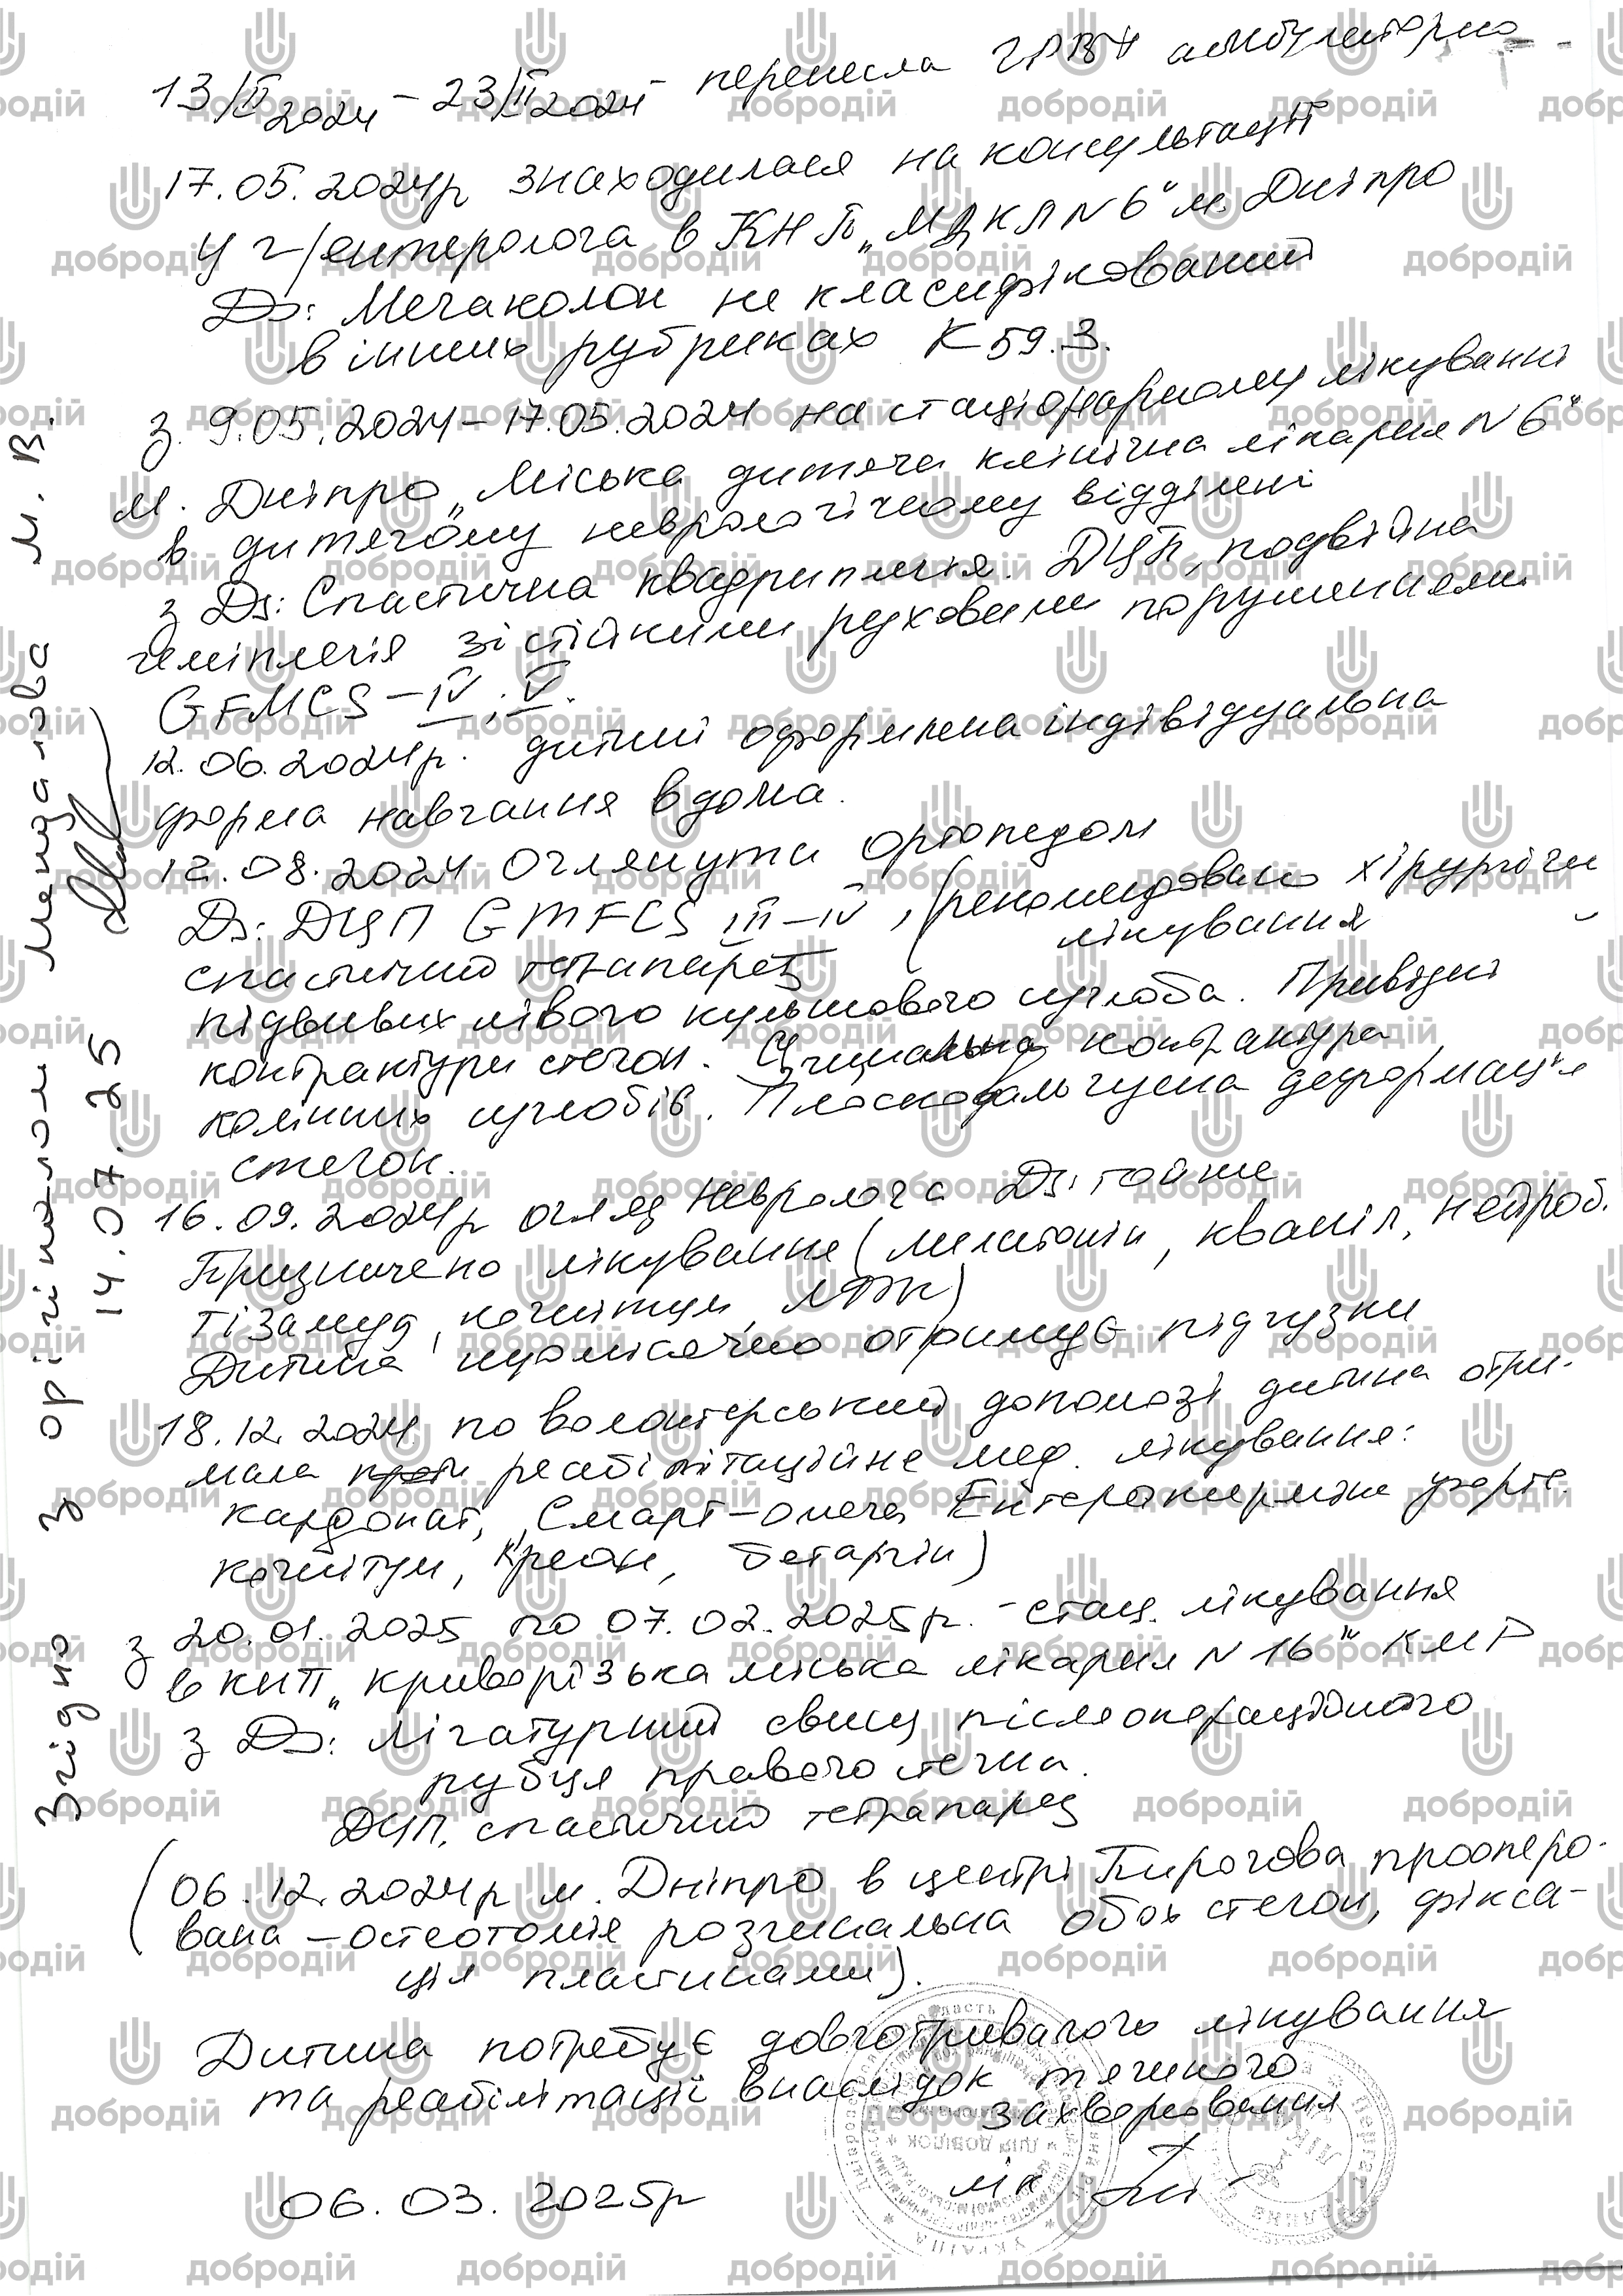 13/II 2024 – 23/II 2024 – перенесла ГРВІ амбулаторно
17.05.2024р знаходилася на консультації
у г/ентеролога в КНП „МДКЛ N 6" м. Дніпро
Ds: Мегаколон не класифікований
в інших рубриках K 59.3.
з 9.05.2024 – 17.05.2024 на стаціонарному лікуванні
м. Дніпро „Міська дитяча клінічна лікарня N 6"
в дитячому неврологічному відділені
з Ds: Спастична квадриплегія. ДЦП, подвійна
геміплегія зі стійкими руховими порушеннями
GFMCS – IV, V.
12.06.2024р. дитині оформлена індівідуальна
форма навчання вдома.
12.08.2024 оглянута ортопедом
Ds: ДЦП GMFCS III – IV, (рекомендовано хірургічн
лікування
спастичний тетрапарез
підвивих лівого кульшового суглоба. Привідні
контрактури стегон. Згинальна контрактура
колінних суглобів. Плосковальгусна деформація
стегон.
16.09.2024р огляд невролога Ds: той же
Призначено лікування (мелатонін, кваніл, нейроб.
тізалуд, когнітум, ЛФК)
Дитина щомісячно отримує підгузки
18.12.2024 по волонтерський допомозі дитина отри-
мала реабілітаційне мед. лікування:
кардонат, Смарт-омега, Ентерожерміна форте.
когнітум, Креон, бетаргін)
з 20.01.2025 по 07.02.2025р. – стац. лікування
в КНП „Криворізька міська лікарня N 16" КМР
з Ds: Лігатурний свищ післяопераційного
рубця правого стегна.
ДЦП, спастичний тетрапарез
(06.12.2024р м. Дніпро в центрі Пирогова проопero-
вана – остеотомія розгинальна обох стегон, фікса-
ція пластинами).
Дитина потребує довготривалого лікування
та реабілітації внаслідок тяжкого
захворювання
06.03.2025р
лік
Згідно з орігіналом Мандалова М. В.
14.07.25
добродій